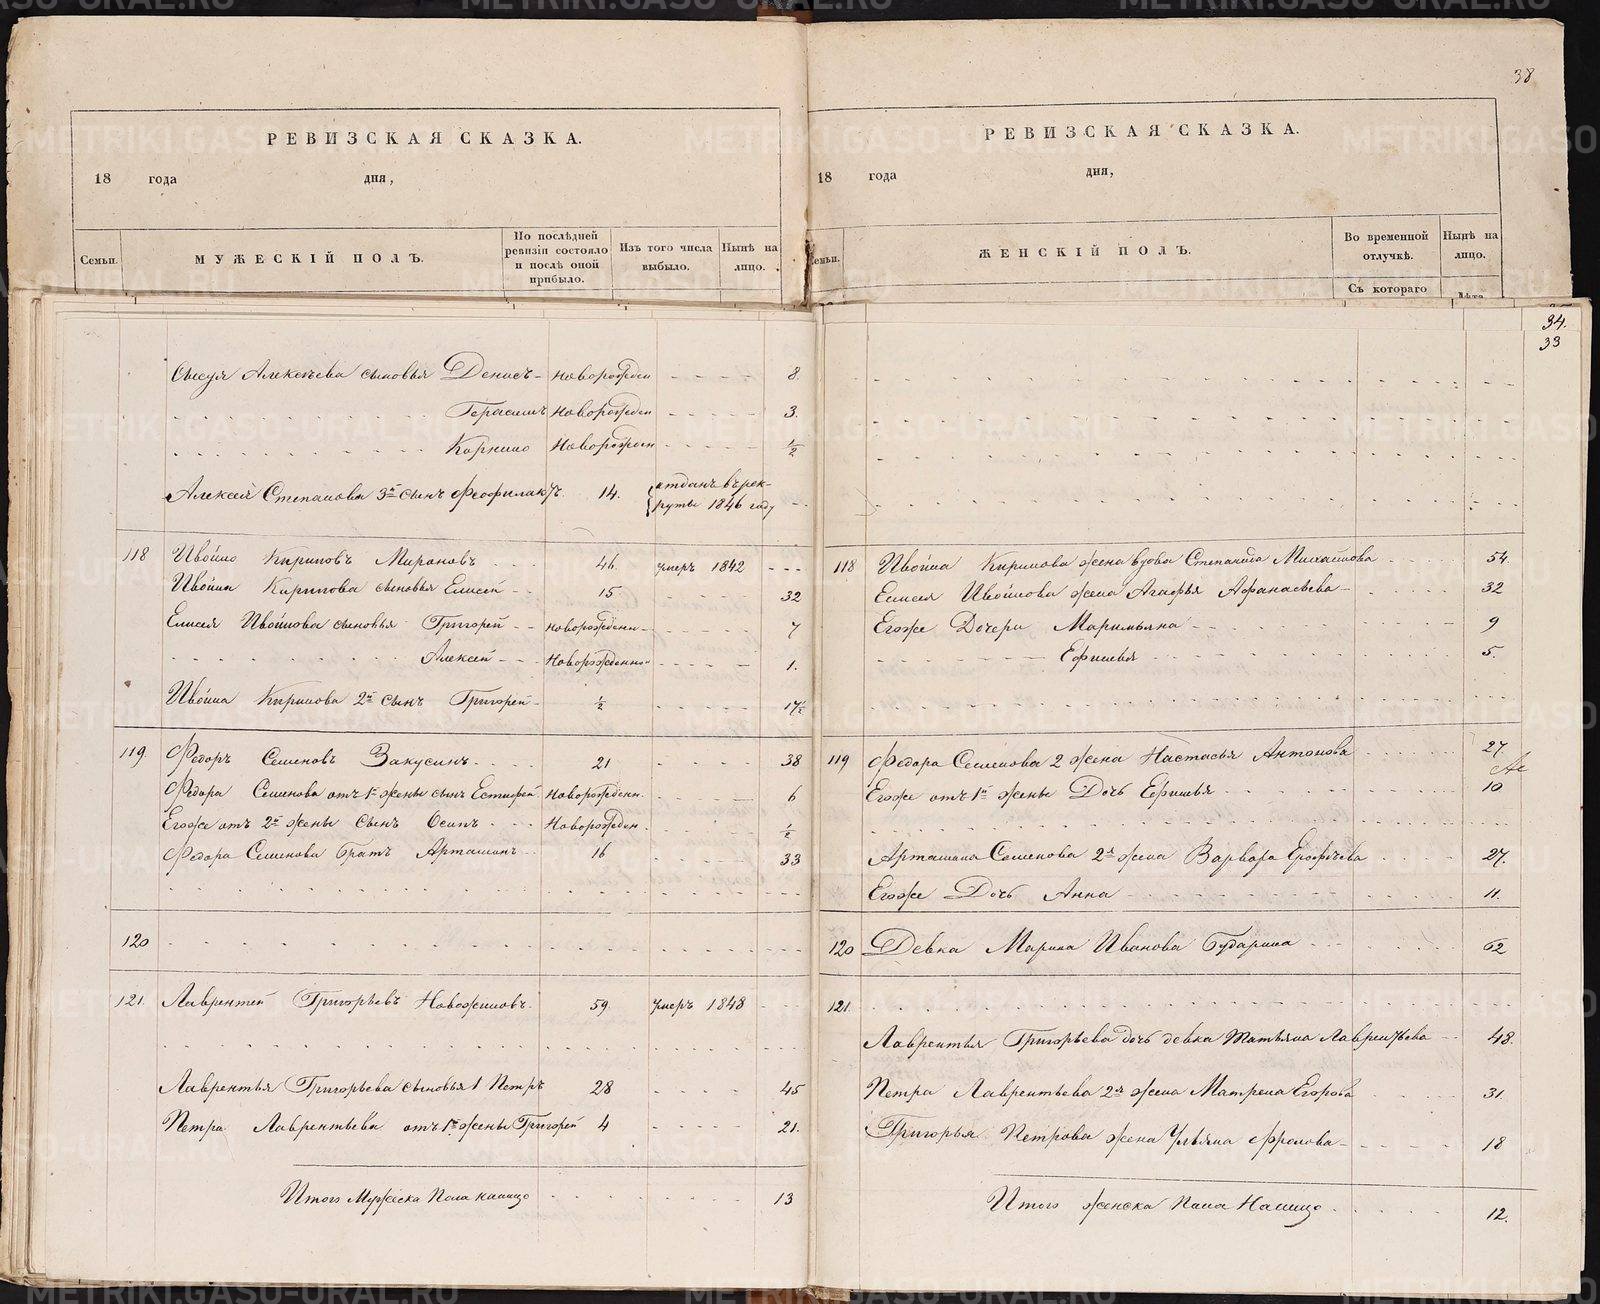 38
РЕВИЗСКАЯ СКАЗКА.
18 года дня,
Семьи.
МУЖЕСКІЙ ПОЛЪ.
По послѣдней ревизіи состояло и послѣ оной прибыло.
Изъ того числа выбыло.
Нынѣ на лицо.
Алексѣева сыновья Денисъ Новорожден 8.
Герасимъ Новорожден 3.
Корнило Новорожден 1/2
Алексея Степанова 3й сынъ Феофилактъ. 14. отданъ въ рек-
руты 1846 году
118 Ивойло Кириловъ Мироновъ 46. умеръ 1842
Ивойла Кирилова сыновья Елисей 15 32
Елисея Ивойлова сыновья Григорей новорожденн 7
Алексей Новорожденно 1.
Ивойла Кирилова 2й сынъ Григорей 1/2 17 1/2
119. Федоръ Семеновъ Закусинъ 21 38
Федора Семенова отъ 1й жены сынъ Естифей Новорожденн. 6
Егоже отъ 2й жены сынъ Осипъ Новорожден. 1/2
Федора Семенова братъ Артамонъ 16 33
120
121. Лаврентей Григорьевъ Новожиловъ. 59. умеръ 1848
Лаврентья Григорьева сыновья 1 Петръ 28 45
Петра Лаврентьева отъ 1й жены Григорей 4 21.
Итого Мужеска Пола налицо 13
РЕВИЗСКАЯ СКАЗКА.
18 года дня,
Семьи.
ЖЕНСКІЙ ПОЛЪ.
Во временной отлучкѣ.
Нынѣ на лицо.
Съ котораго
Лѣта
34.
33
118 Ивойла Кирилова жена вдова Степанида Михайлова 54.
Елисея Ивойлова жена Агафья Афанасьева 32
Егоже Дочери Маримьяна 9
Ефимья 5.
119 Федора Семенова 2 жена Настасья Антонова 27
Егоже отъ 1й жены Дочь Ефимья 10
Артамона Семенова 2я жена Варвара Ерофѣева 27.
Егоже Дочь Анна 11.
120 Девка Марина Иванова Бударина 62
121.
Лаврентья Григорьева дочь девка Татьяна Лаврентьева 48.
Петра Лаврентьева 2я жена Матрена Егорова 31.
Григорья Петрова жена Ульяна Фролова 18
Итого женска Пола Налицо 12.
METRIKI.GASO-URAL.RU